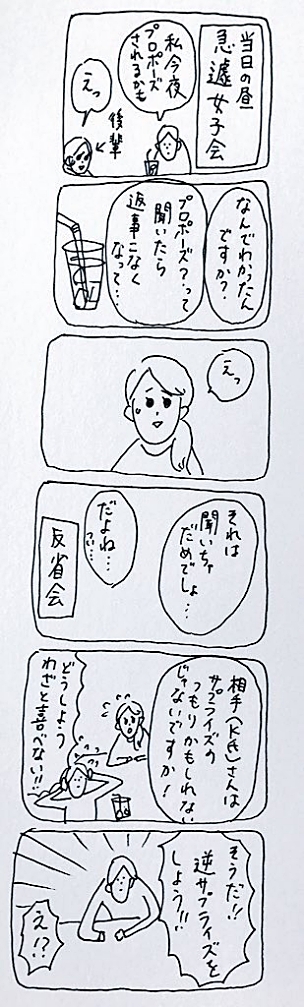 当日の昼
急遽女子会
私今夜
プロポーズ
されるかも
えっ
後輩
なんでわかったん
ですか?
プロポーズ?って
聞いたら
返事こなく
なって…
えっ
それは
聞いちゃ
だめでしょ…
だよね…
反省会
相手(K氏)さんは
サプライズの
つもりかもしれない
じゃないですか!
どうしよう
わざと喜べない!!
そうだ!!
逆サプライズを
しよう!!
え!?